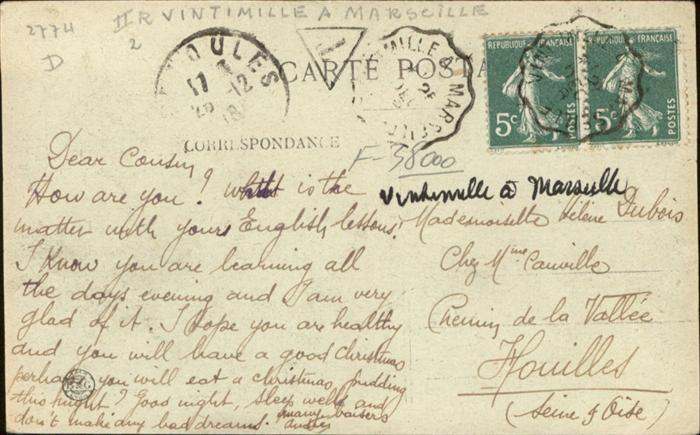 2774
D
II R VINTIMILLE A MARSEILLE
2
OULES
17
12
CARTE POSTA
CORRESPONDANCE
RÉPUBLIQUE FRANÇAISE
5c
RÉPUBLIQUE FRANÇAISE
5c
F-38000
Vintimille à Marseille
Dear Cousin,
How are you? What is the
matter with yours English lessons?
I know you are learning all
the days evening and I am very
glad of it. I hope you are healthy
and you will have a good Christmas
perhaps you will eat a christmas pudding
this night? Good night, sleep well and
don't make any bad dreams.
many baisers
Mademoiselle Hélène Dubois
Chez Mme Cauville
Chemin de la Vallée
Houilles
(Seine & Oise)